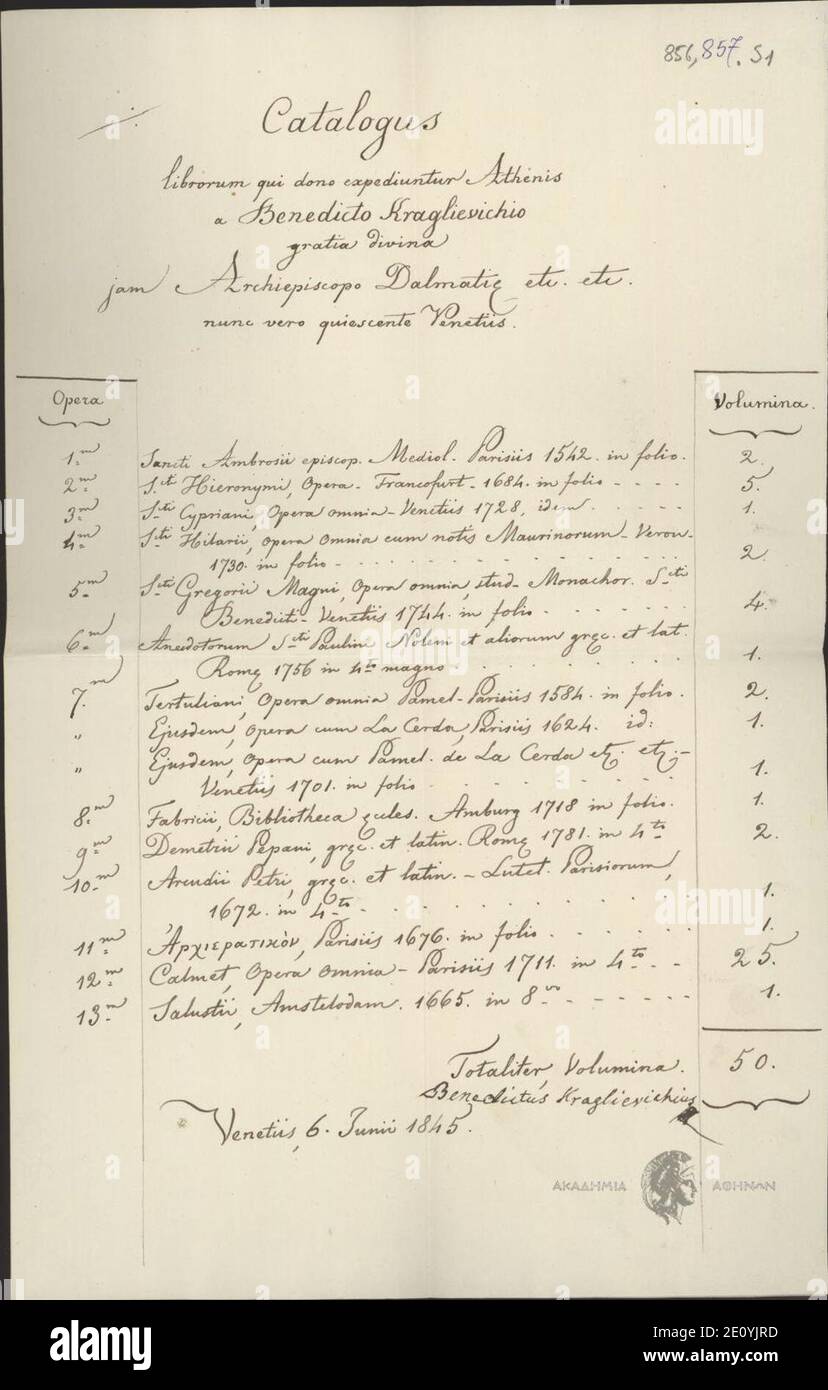 856, 857. S1
Catalogus
librorum qui dono expediuntur Athenis
a Benedicto Kraglievichio
gratia divina
jam Archiepiscopo Dalmatię etc. etc.
nunc vero quiescente Venetiis.
Opera Volumina.
1.m Sancti Ambrosii episcop. Mediol. Parisiis 1542. in folio. 2.
2.m S.cti Hieronymi, Opera - Francofurt. 1684. in folio - - - - 5.
3.m S.cti Cypriani, Opera omnia - Venetiis 1728, idem . . . . . 1.
4.m S.cti Hilarii, opera omnia cum notis Maurinorum - Veron-
1730. in folio - . . . . . . . . . . . 2.
5.m S.cti Gregorii Magni, Opera omnia, stud. Monachor. S.cti
Benedicti - Venetiis 1744. in folio - . . . . . 4.
6.m Anecdotorum S.cti Paulini Noleni et aliorum gręc. et lat.
Romę 1756 in 4.to magno . . . . . . . . 1.
7.m Tertuliani, Opera omnia Pamel - Parisiis 1584. in folio. 2.
" Ejusdem, opera cum La Cerda, Parisiis 1624. id: 1.
" Ejusdem, opera cum Pamel. de La Cerda etc. etc. -
Venetiis 1701. in folio . . . . . . . . 1.
8.m Fabricii, Bibliotheca ęcles. Amburg 1718 in folio. 1.
9.m Demetrii Pepani, gręc. et latin. Romę 1781. in 4.to 2.
10.m Arcudii Petri, gręc. et latin. - Lutet. Parisiorum,
1672. in 4.to - . . . . . . . . . 1.
11.m Ἀρχιερατικὸν, Parisiis 1676. in folio . . . . . . 1.
12.m Calmet, Opera omnia - Parisiis 1711. in 4.to - - 25.
13.m Salustii, Amstelodam. 1665. in 8.vo - - - - - - 1.
Totaliter, Volumina. 50.
Benedictus Kraglievichius
Venetiis, 6. Junii 1845.
ΑΚΑΔΗΜΙΑ ΑΘΗΝΩΝ
alamy
alamy
alamy
Image ID: 2E0YJRD
www.alamy.com